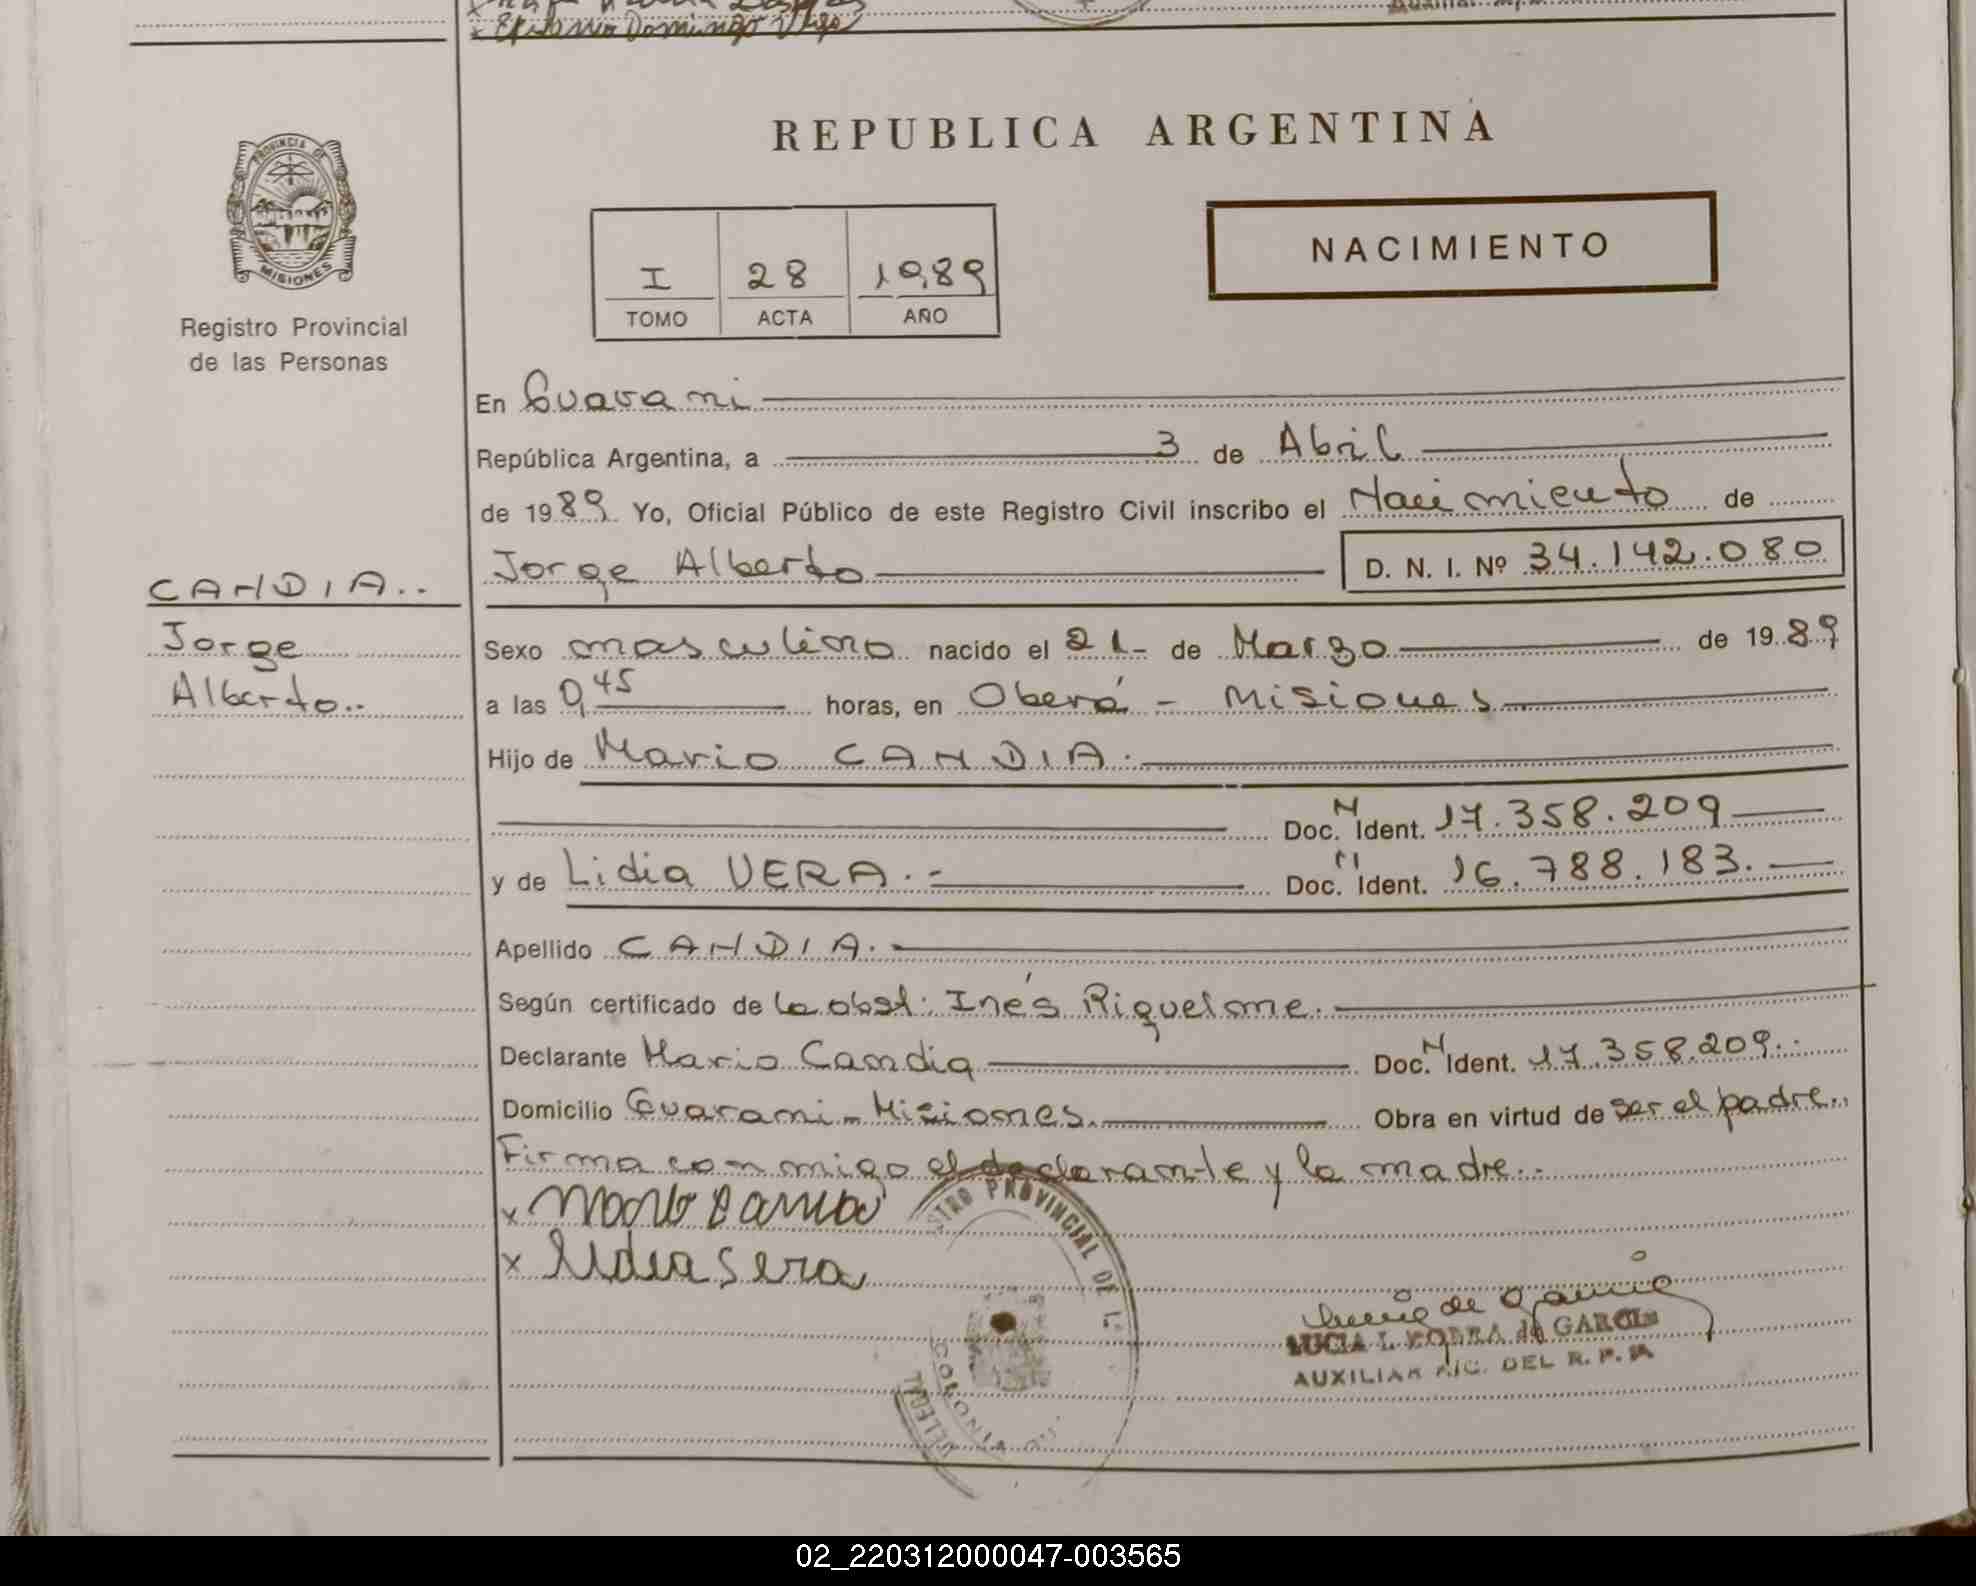 Domingo
REPUBLICA ARGENTINA
PROVINCIA DE
MISIONES
Registro Provincial
de las Personas
I 28 1989
TOMO ACTA AÑO
NACIMIENTO
En Guarani
República Argentina, a 3 de Abril
de 1989 Yo, Oficial Público de este Registro Civil inscribo el Nacimiento de
Jorge Alberto D. N. I. Nº 34.142.080
CANDIA..
Jorge
Alberto..
Sexo masculino nacido el 21- de Marzo de 1989
a las 0,45 horas, en Oberá - Misiones
Hijo de Mario CANDIA.
Doc. N Ident. 17.358.209
y de Lidia VERA.- Doc. Ident. 16.788.183.
Apellido CANDIA.
Según certificado de la obst: Inés Riquelme.
Declarante Mario Candia Doc. N Ident. 17.358.209..
Domicilio Guarani - Misiones. Obra en virtud de ser el padre..
Firma conmigo el declarante y la madre..
x
x
STRO PROVINCIAL DE L
LUCIA L. de GARCIA
AUXILIAR DEL R. P. P.
02_220312000047-003565